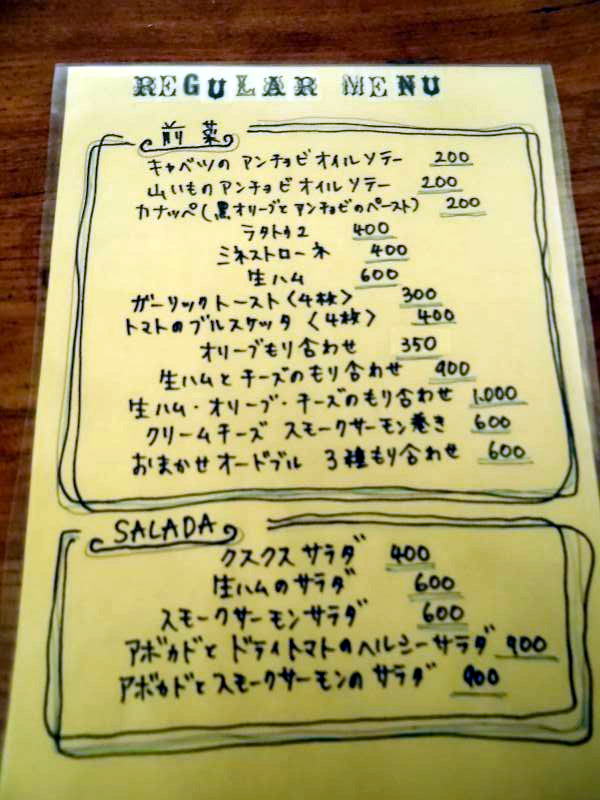 REGULAR MENU
前菜
キャベツのアンチョビオイルソテー 200
山いものアンチョビオイルソテー 200
カナッペ(黒オリーブとアンチョビのペースト) 200
ラタトゥユ 400
ミネストローネ 400
生ハム 600
ガーリックトースト〈4枚〉 300
トマトのブルスケッタ〈4枚〉 400
オリーブもり合わせ 350
生ハムとチーズのもり合わせ 900
生ハム・オリーブ・チーズのもり合わせ 1,000
クリームチーズ スモークサーモン巻き 600
おまかせオードブル 3種もり合わせ 600
SALADA
クスクスサラダ 400
生ハムのサラダ 600
スモークサーモンサラダ 600
アボカドとドライトマトのヘルシーサラダ 900
アボカドとスモークサーモンのサラダ 900